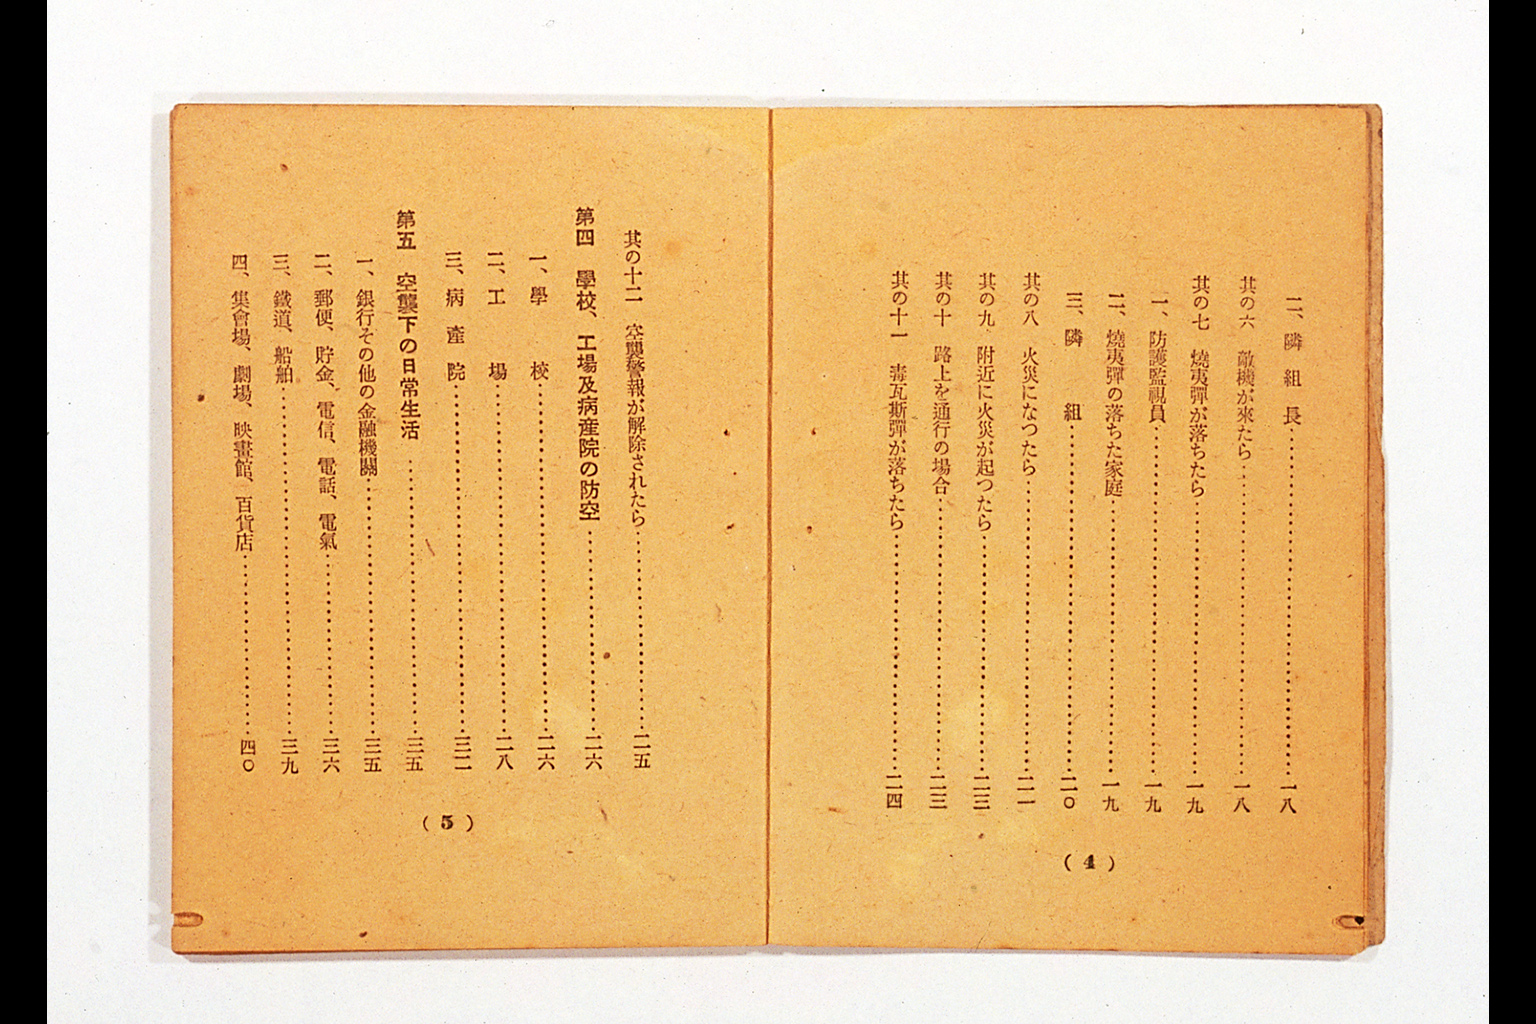 二、隣組長…………一八
其の六 敵機が來たら…………一八
其の七 燒夷彈が落ちたら…………一九
一、防護監視員…………一九
二、燒夷彈の落ちた家庭…………一九
三、隣組…………二〇
其の八 火災になつたら…………二一
其の九 附近に火災が起つたら…………二三
其の十 路上を通行の場合…………二三
其の十一 毒瓦斯彈が落ちたら…………二四
(4)
其の十二 空襲警報が解除されたら…………二五
第四 學校、工場及病產院の防空…………二六
一、學校…………二六
二、工場…………二八
三、病產院…………三二
第五 空襲下の日常生活…………三五
一、銀行その他の金融機關…………三五
二、郵便、貯金、電信、電話、電氣…………三六
三、鐵道、船舶…………三九
四、集會場、劇場、映畫館、百貨店…………四〇
(5)